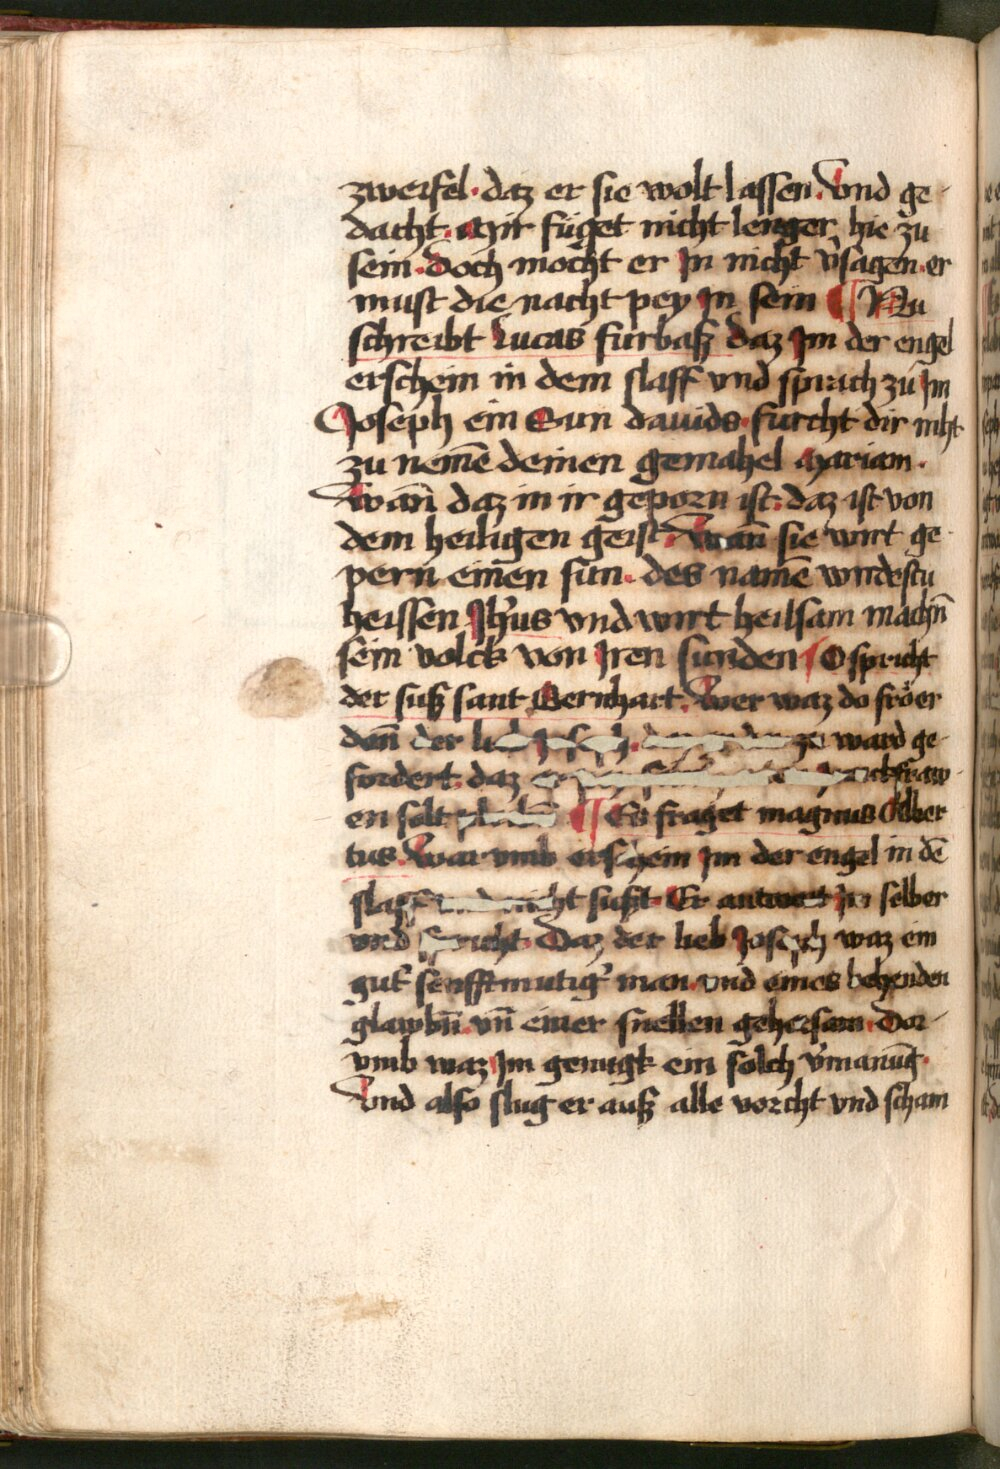 zweifel · daz er sie wolt lassen. Vnd ge-
dacht. Mir füget nicht lenger hie zu
sein · Doch mocht er Jn nicht v̉sagen · er
must die nacht pey Jn sein ¶ Nu
schreibt Lucas furbaß daz Jm der engel
erschein in dem slaff vnd sprach zu Jm
Joseph ein Sun dauids · furcht dir niht
zu nemē deinen gemahel Mariam ·
Wan̄ daz in ir geporn ist · daz ist von
dem heiligen geist · Wan̄ sie wirt ge-
pern einen sun · des namē wirdestu
heissen Jh̓us vnd wirt heilsam machn̄
sein volck von Jren sunden ¶ O spricht
der suß sant Bernhart. Wer waz do fröer
dan̄ der ward ge-
fordert · daz
en solt ¶ Es fraget magnus Alber
tus. War vmb erschein Jm der engel in dē
slaff nicht sußt · Er antwort Jm selber
vnd spricht · Daz der lieb Joseph waz ein
gut̓ senfftmutig̓ man · vnd eines behenden
glawbn̄ vn̄ einer snellen gehorsam · Dor-
vmb waz Jm genugk ein solch v̉manūg ·
Vnd also slug er auß alle vorcht vnd scham